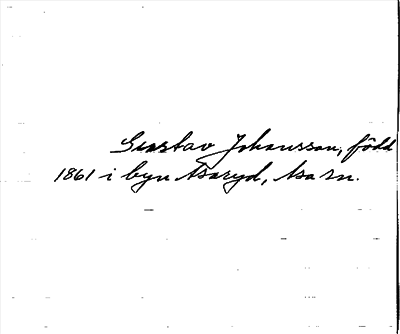 Gustav Johansson, född
1861 i byn Asaryd, Asa sn.